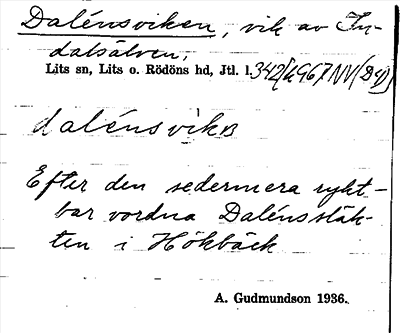 Dalénsviken, vik av In-
dalsälven,
Lits sn, Lits o. Rödöns hd, Jtl. l.
dalénsvikɐ
Efter den sedermera rykt-
bar vordna Dalénssläk-
ten i Hökbäck
A. Gudmundson 1936.